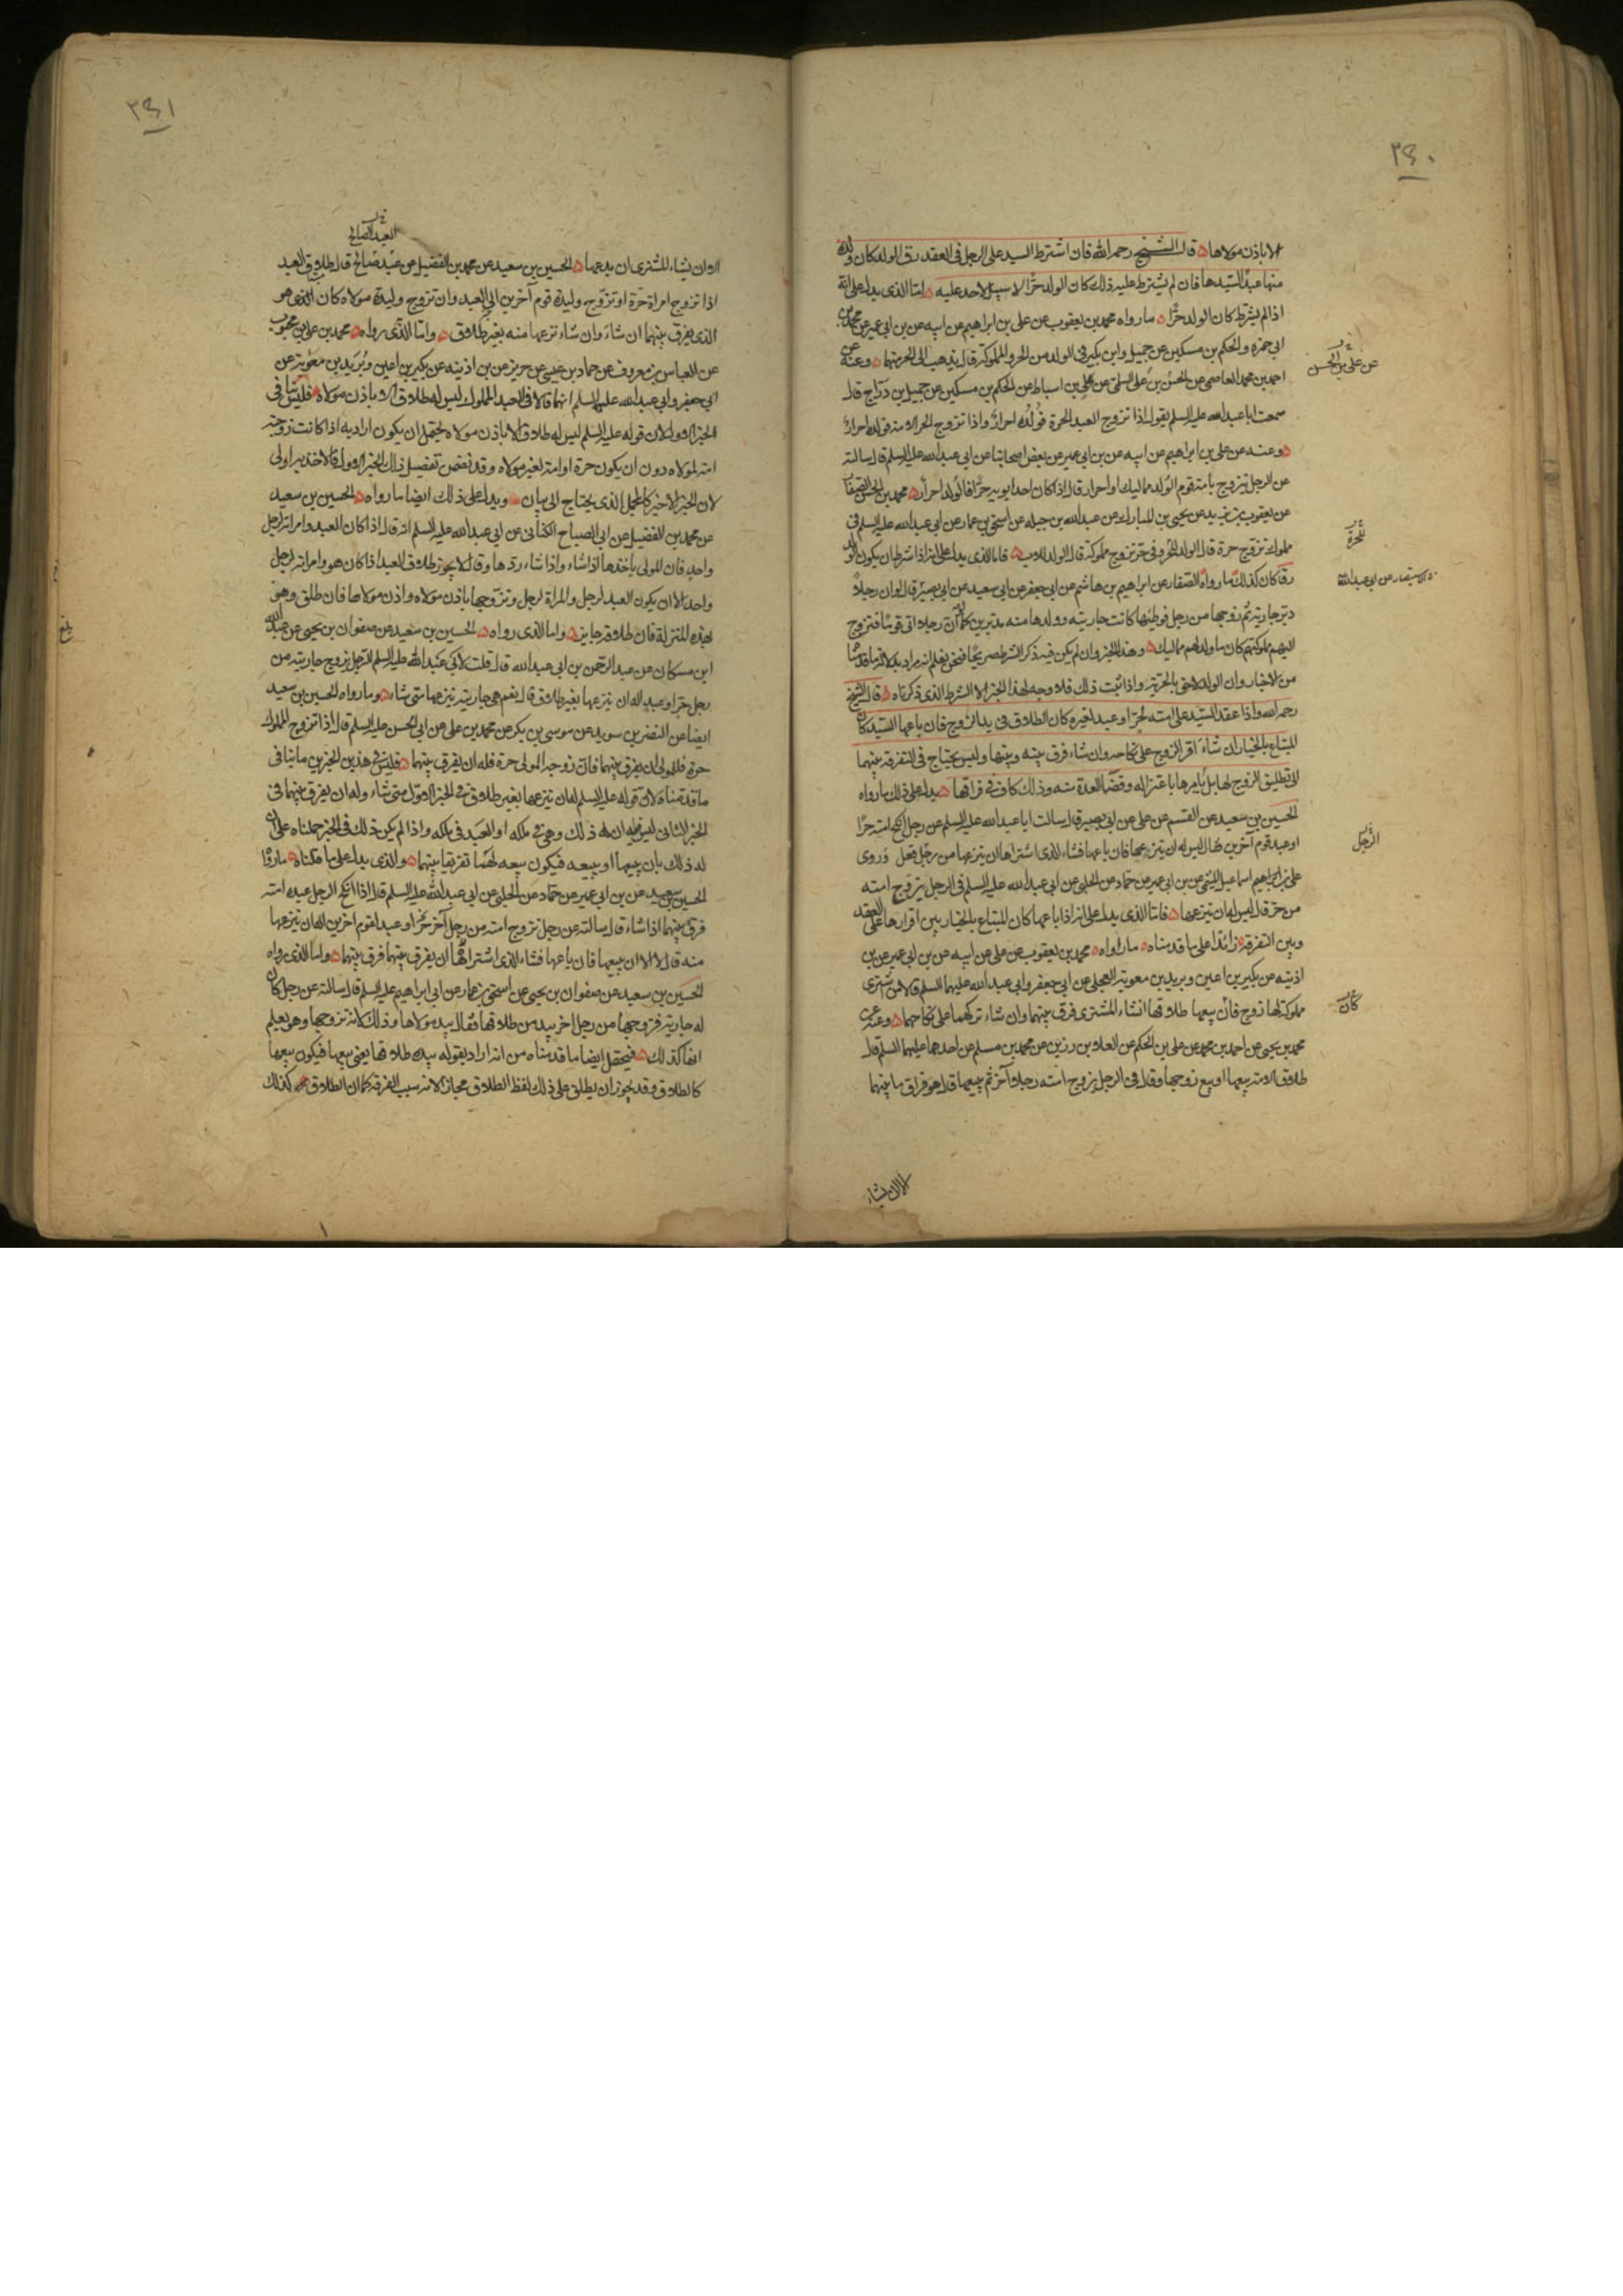 ٢٤٠
الا باذن مولاها قال الشيخ رحمه الله فان اشترط السيد على الرجل في العقد رق الولد كان ولده
منها عبدا لسيدها فان لم يشترط عليه ذلك كان الولد حرا لا سبيل لاحد عليه اما الذي يدل على انه
اذا لم يشترط كان الولد حرا ما رواه محمد بن يعقوب عن علي بن ابراهيم عن ابيه عن بن ابي عمير عن محمد بن
ابي حمزه والحكم بن مسكين عن جميل وابن بكير في الولد من الحر والمملوكة قال يذهب الى الحر منهما وعنه عن
احمد بن محمد العاصمي عن الحسن بن علي السلمي عن علي بن اسباط عن الحكم بن مسكين عن جميل بن دراج قال
سمعت ابا عبد الله عليه السلم يقول اذا تزوج العبد الحرة فولده احرار واذا تزوج الحر الامة فولده احرار
وعنه عن علي بن ابراهيم عن ابيه عن بن ابي عمير عن بعض اصحابنا عن ابي عبد الله عليه السلم قال سالته
عن الرجل تيزوج بامة قوم الولد مماليك او احرار قال اذا كان احد ابويه حرا فالولد احرار محمد بن الحسن الصفار
عن يعقوب بن يزيد عن يحيى بن المبارك عن عبد الله بن جبله عن اسحق بن عمار عن ابي عبد الله عليه السلم في
مملوك تزوج حرة قال الولد للحر وفي حر تزوج مملوكة قال الولد للاب فاما الذي يدل على انه اذا شرط ان يكون الولد
رقا كان كذلك ما رواه الصفار عن ابراهيم بن هاشم عن ابي جعفر عن ابي سعيد عن ابي بصير قال لو ان رجلا
دبر جاريته ثم زوجها من رجل فوطئها كانت جاريته وولدها منه مدبرين كما لو ان رجلا اتى قوما فتزوج
اليهم مملوكتهم كان ما ولد لهم مماليك وهذا الخبر وان لم يكن فيه ذكر الشرط صريحا فنحن نعلم انه مراد بدلالة ما قدمنا
من الاخبار وان الولد لاحق بالحرية واذا ثبت ذلك فلا وجه لهذا الخبر الا الشرط الذي ذكرناه قال الشيخ
رحمه الله واذا عقد السيد على امته لحر او عبد لغيره كان الطلاق في يد الزوج فان باعها السيد كان
المبتاع بالخيار ان شاء اقر الزوج على نكاحه وان شاء فرق بينه وبينها وليس يحتاج في التفرقة بينهما
الى تطليق الزوج لها بل يامرها باعتزاله وقضا العدة منه وذلك كاف في فراقها يدل على ذلك ما رواه
الحسين بن سعيد عن القسم عن علي عن ابي بصير قال سالت ابا عبد الله عليه السلم عن رجل انكح امته حرا
او عبد قوم آخرين فقال ليس له ان ينزعها فان باعها فشاء الذي اشتراها ان ينزعها من رجل فعل وروى
علي بن ابراهيم اسماعيل الميثمي عن بن ابي عمير عن حماد عن الحلبي عن ابي عبد الله عليه السلم في الرجل يزوج امته
من حر قال ليس له ان ينزعها فاما الذي يدل على انه اذا باعها كان المبتاع بالخيار بين اقرارها على العقد
وبين التفرقة زائدا على ما قدمناه ما رواه محمد بن يعقوب عن علي عن ابيه عن بن ابي عمير عن بن
اذينه عن بكير بن اعين وبريد بن معوية العجلي عن ابي جعفر وابي عبد الله عليهما السلم قالا من اشترى
مملوكة لها زوج فان بيعها طلاقها ان شاء المشتري فرق بينهما وان شاء تركهما على نكاحهما وعنه عن
محمد بن يحيى عن احمد بن محمد عن علي بن الحكم عن العلاء بن رزين عن محمد بن مسلم عن احدهما عليهما السلم قال
طلاق الامة بيعها او بيع زوجها وقال في الرجل يزوج امته رجلا آخر ثم يبيعها قال هو فراق ما بينهما
الا ان يشاء
عن علي بن الحسن
للحرة
الاستبصار عن ابي عبد الله
الرجل
كان
٢٤١
العبد الصالح
الا ان يشاء المشتري ان يدعهما الحسين بن سعيد عن محمد بن الفضيل عن عبد صالح قال طلاق العبد
اذا تزوج امراة حرة او تزوج وليدة قوم آخرين الى العبد وان تزوج وليدة مولاه كان الذي هو
الذي يفرق بينهما ان شاء وان شاء نزعها منه بغير طلاق واما الذي رواه محمد بن علي بن محبوب
عن العباس بن معروف عن حماد بن عيسى عن حريز عن بن اذينه عن بكير بن اعين وبريد بن معوية عن
ابي جعفر وابي عبد الله عليهما السلم انهما قالا في العبد المملوك ليس له طلاق الا باذن مولاه فليس ينافي
الخبر الاول لان قوله عليه السلم ليس له طلاق الا باذن مولاه يحتمل ان يكون اراد به اذا كانت زوجته
امة لمولاه دون ان يكون حرة او امة لغير مولاه وقد تضمن تفصيل ذلك الخبر الاول فالاخذ به اولى
لان الخبر الاخير كالمجمل الذي يحتاج الى بيان ويدل على ذلك ايضا ما رواه الحسين بن سعيد
عن محمد بن الفضيل عن ابي الصباح الكناني عن ابي عبد الله عليه السلم انه قال اذا كان العبد وامراته لرجل
واحد فان المولى ياخذها اذا شاء واذا شاء ردها وقال لا يجوز طلاق العبد اذا كان هو وامراته لرجل
واحد الا ان يكون العبد لرجل والمراة لرجل وتزوجها باذن مولاه واذن مولاها فان طلق وهو
بهذه المنزلة فان طلاقه جايز واما الذي رواه الحسين بن سعيد عن صفوان بن يحيى عن عبد الله
ابن مسكان عن عبد الرحمن بن ابي عبد الله قال قلت لابي عبد الله عليه السلم الرجل يزوج جاريته من
رجل حر او عبد اله ان ينزعها بغير طلاق قال نعم هي جاريته ينزعها متى شاء وما رواه الحسين بن سعيد
ايضا عن النضر بن سويد عن موسى بن بكر عن محمد بن علي عن ابي الحسن عليه السلم قال اذا تزوج المملوك
حرة فللمولى ان يفرق بينهما فان زوجه المولى حرة فله ان يفرق بينهما فليس في هذين الخبرين ما ينافي
ما قدمناه لان قوله عليه السلم له ان ينزعها بغير طلاق في الخبر الاول متى شاء وله ان يفرق بينهما في
الخبر الثاني ليس فيه ان له ذلك وهي في ملكه او العبد في ملكه واذا لم يكن ذلك في الخبر حملناه على ان
له ذلك بان يبيعها او يبيعه فيكون بيعه لهما تفريقا بينهما والذي يدل على ما قلناه ما رواه
الحسين بن سعيد عن بن ابي عمير عن حماد عن الحلبي عن ابي عبد الله عليه السلم قال اذا انكح الرجل عبده امته
فرق بينهما اذا شاء قال سالته عن رجل يزوج امته من رجل آخر حر او عبد لقوم اخرين اله ان ينزعها
منه قال لا الا ان يبيعها فان باعها فشاء الذي اشتراها ان يفرق بينهما فرق بينهما واما الذي رواه
الحسين بن سعيد عن صفوان بن يحيى عن اسحق بن عمار عن ابي ابراهيم عليه السلم قال سالته عن رجل كان
له جارية فزوجها من رجل اخر بيد من طلاقها فقال بيد مولاها وذلك لانه تزوجها وهو يعلم
انها كذلك فيحتمل ايضا ما قدمناه من انه اراد بقوله بيده طلاقها يعني بيعها فيكون بيعها
كالطلاق وقد يجوز ان يطلق على ذلك لفظ الطلاق مجازا لانه سبب الفرقة كما ان الطلاق كذلك
بلغ